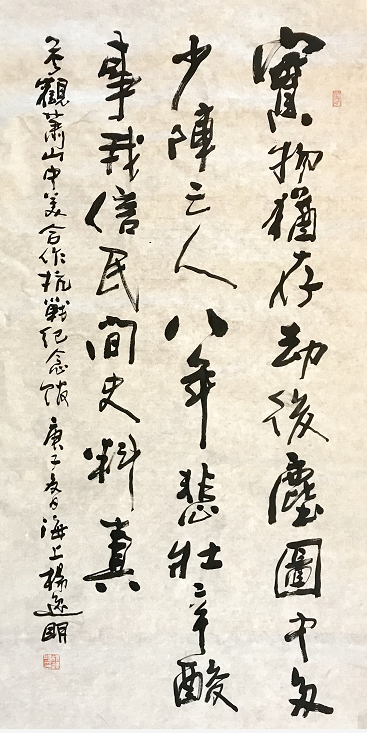 實物猶存劫後塵圖中多
少陣亡人八年悲壯辛酸
事我信民間史料真
參觀蕭山中美合作抗戰紀念館 庚子 海上楊逸明